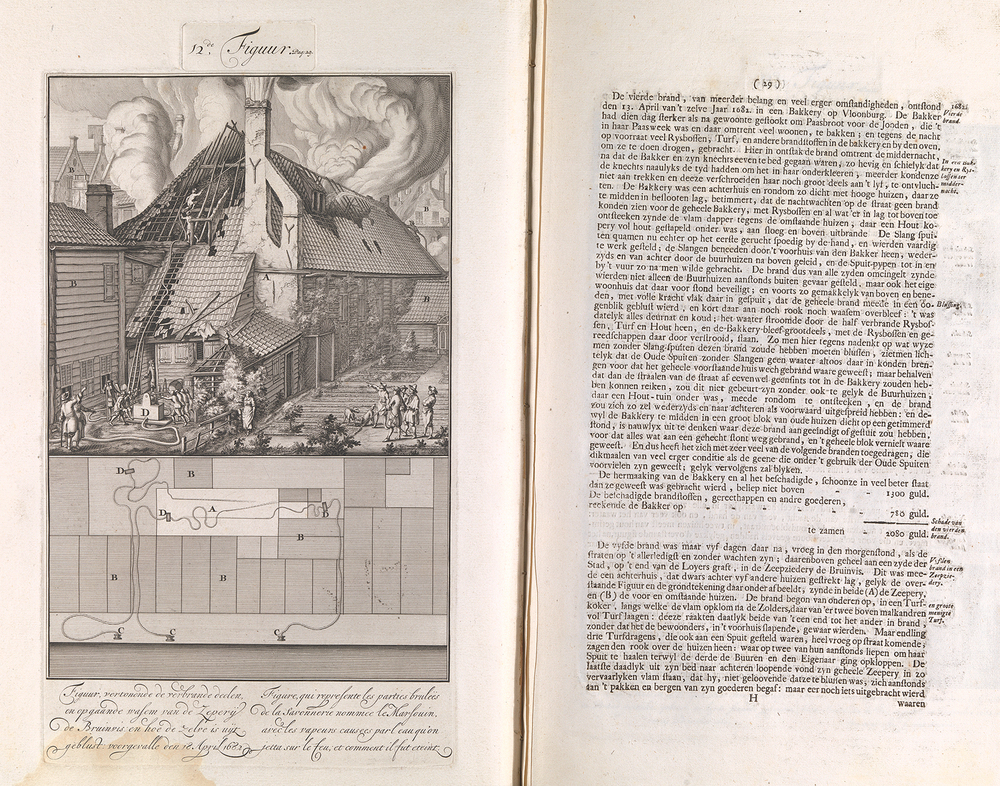 12de. Figuur. Pag. 29.
B
B
B
A
B
A
D
D
B
D
A
D
B
B
B
C
C
C
Figuur, vertonende de verbrande deelen,
en opgaande wasem van de Zepery
de Bruinvis en hoe de zelve is uyt
geblust: voorgevalle den 18 April 1682
Figure, qui represente les parties brulées
de la Savonnerie nommée le Marsouin,
avec les vapeurs causées par l'eau qu'on
jetta sur le feu, et comment il fut eteint.
( 29 )
De vierde brand, van meerder belang en veel erger omſtandigheden, ontſtond
den 13. April van't zelve Jaar 1682. in een Bakkery op Vloonburg. De Bakker
had dien dag ſterker als na gewoonte geſtookt om Paasbroot voor de Jooden, die 't
in haar Paasweek was en daar omtrent veel woonen, te bakken; en tegens de nacht
op voorraat veel Rysboſſen, Turf, en andere brandſtoffen in de bakkery en by den oven,
om ze te doen drogen, gebracht. Hier in ontſtak de brand omtrent de middernacht,
na dat de Bakker en zyn knechts eeven te bed gegaan waren, zo hevig en ſchielyk dat
de knechts naaulyks de tyd hadden om het in haar onderkleeren, meerder kondenze
niet aan trekken en deeze verſchroeiden haar noch groot deels aan 't lyf, te ontvluch-
ten. De Bakkery was een achterhuis en rondom zo dicht met hooge huizen, daar ze
te midden in beſlooten lag, betimmert, dat de nachtwachten op de ſtraat geen brand
konden zien voor de geheele Bakkery, met Rysboſſen en al wat 'er in lag tot boven toe
ontſteeken zynde de vlam dapper tegens de omſtaande huizen, daar een Hout ko-
pery vol hout geſtapeld onder was, aan ſloeg en boven uitbrande. De Slang ſpui-
ten quamen nu echter op het eerſte gerucht ſpoedig by de hand, en wierden vaardig
te werk geſteld; de Slangen beneeden door't voorhuis van den Bakker heen, weder-
zyds en van achter door de buurhuizen na boven geleid, en de Spuit-pypen tot in en
by 't vuur zo na men wilde gebracht. De brand dus van alle zyden omcingelt zynde
wierden niet alleen de Buurhuizen aanſtonds buiten gevaar geſteld, maar ook het eige
woonhuis dat daar voor ſtond beveiligt; en voorts zo gemakkelyk van boven en bene-
den, met volle kracht vlak daar in geſpuit, dat de geheele brand meede in een oo-
genblik gebluſt wierd, en kort daar aan noch rook noch waaſem overbleef: 't was
datelyk alles deurnat en koud; het waater ſtroomde door de half verbrande Rysboſ-
ſen, Turf en Hout heen, en de Bakkery bleef grootdeels, met de Rysboſſen en ge-
reedſchappen daar door verſtrooid, ſtaan. Zo men hier tegens nadenkt op wat wyze
men zonder Slang-ſpuiten dezen brand zoude hebben moeten bluſſen, zietmen lich-
telyk dat de Oude Spuiten zonder Slangen geen waater altoos daar in konden bren-
gen voor dat het geheele voorſtaande huis wech gebrand waare geweeſt; maar behalven
dat dan de ſtraalen van de ſtraat af eevenwel geenſints tot in de Bakkery zouden heb-
ben konnen reiken, zou dit niet gebeurt zyn zonder ook te gelyk de Buurhuizen,
daar een Hout-tuin onder was, meede rondom te ontſteeken, en de brand
zou zich zo zel wederzyds en naar achteren als voorwaard uitgeſpreid hebben: en de-
wyl de Bakkery te midden in een groot blok van oude huizen dicht op een getimmerd
ſtond, is nauwlyx uit te denken waar deze brand aan geeindigt of geſtuit zou hebben,
voor dat alles wat aan een gehecht ſtont weg gebrand, en 't geheele blok vernielt waare
geweeſt. En dus heeft het zich met zeer veel van de volgende branden toegedragen; die
dikmaalen van veel erger conditie als de geene die onder 't gebruik der Oude Spuiten
voorvielen zyn geweeſt; gelyk vervolgens zal blyken.
De hermaaking van de Bakkery en al het beſchadigde, ſchoonze in veel beter ſtaat
dan ze geweeſt was gebracht wierd, beliep niet boven - - 1300 guld.
De beſchadigde brandſtoffen, gereethappen en andre goederen,
reekende de Bakker op - - - - - 780 guld.
te zamen - 2080 guld.
De vyfde brand was maar vyf dagen daar na, vroeg in den morgenſtond, als de
ſtraten op 't allerledigſt en zonder wachten zyn; daarenboven geheel aan een zyde der
Stad, op 't end van de Loyers graft, in de Zeepziedery de Bruinvis. Dit was mee-
de een achterhuis, dat dwars achter vyf andere huizen geſtrekt lag, gelyk de over-
ſtaande Figuur en de grondtekening daar onder afbeeldt; zynde in beide (A) de Zeepery,
en (B) de voor en omſtaande huizen. De brand begon van onderen op, in een Turf-
koker, langs welke de vlam opklom na de Zolders, daar van 'er twee boven malkandren
vol Turf laagen: deeze raakten daatlyk beide van 't een end tot het ander in brand,
zonder dat het de bewoonders, in 't voorhuis ſlapende, gewaar wierden. Maar endling
drie Turfdragers, die ook aan een Spuit geſteld waren, heel vroeg op ſtraat komende,
zagen den rook over de huizen heen: waar op twee van hun aanſtonds liepen om haar
Spuit te haalen terwyl de derde de Buuren en den Eigenaar ging opkloppen. De
laatſte daadlyk uit zyn bed naar achteren loopende vond zyn geheele Zeepery in zo
vervaarlyken vlam ſtaan, dat hy, niet geloovende datze te bluſſen was, zich aanſtonds
aan 't pakken en bergen van zyn goederen begaf: maar eer noch iets uitgebracht wierd
H
waaren
1682.
Vierde
brand.
In een Bak-
kery en Rys-
boſſen ter
midder-
nacht.
Bluſſing.
Schade van
den vierden
brand.
Vyfden
brand in een
Zeepzie-
dery.
en groote
menigte
Turf.